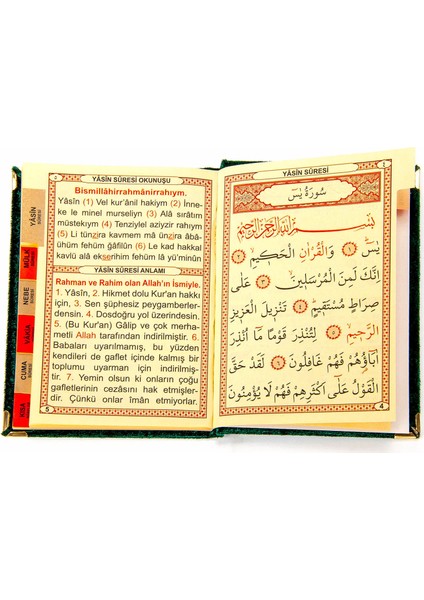 YÂSİN SÛRESİ OKUNUŞU
Bismillâhirrahmânirrahıym.
Yâsîn (1) Vel kur'ânil hakiym (2) İnne-
ke le minel murseliyn (3) Alâ sırâtım
müstekıym (4) Tenziylel aziyzir rahıym
(5) Li tünzira kavmem mâ ünzira âbâ-
ühüm fehüm ğâfilûn (6) Le kad hakkal
kavlü alâ ekserihim fehüm lâ yü'minûn
YÂSİN SÛRESİ ANLAMI
Rahman ve Rahim olan Allah'ın İsmiyle.
1. Yâsîn, 2. Hikmet dolu Kur'an hakkı
için, 3. Sen şüphesiz peygamberler-
densin. 4. Dosdoğru yol üzerindesin.
5. (Bu Kur'an) Gâlip ve çok merha-
metli Allah tarafından indirilmiştir. 6.
Babaları uyarılmamış, bu yüzden
kendileri de gaflet içinde kalmış bir
toplumu uyarman için indirilmiştir.
7. Yemin olsun ki onların çoğu
gafletlerinin cezasını hak etmişler-
dir. Çünkü onlar îmân etmiyorlar.
5
YÂSİN SÛRESİ
MÜLK
NEBE SÛRESİ
VAKIA
CUMA SÛRESİ
KISA
YÂSİN SÛRESİ
سُورَةُ يٰسٓ
بِسْمِ اللّٰهِ الرَّحْمٰنِ الرَّحِيمِ
يٰسٓ ﴿١﴾ وَالْقُرْاٰنِ الْحَكِيمِ ﴿٢﴾
اِنَّكَ لَمِنَ الْمُرْسَلِينَ ﴿٣﴾ عَلٰى
صِرَاطٍ مُسْتَقِيمٍ ﴿٤﴾ تَنْزِيلَ الْعَزِيزِ
الرَّحِيمِ ﴿٥﴾ لِتُنْذِرَ قَوْمًا مَا اُنْذِرَ
اٰبَاؤُهُمْ فَهُمْ غَافِلُونَ ﴿٦﴾ لَقَدْ حَقَّ
الْقَوْلُ عَلٰى اَكْثَرِهِمْ فَهُمْ لَا يُؤْمِنُونَ
4